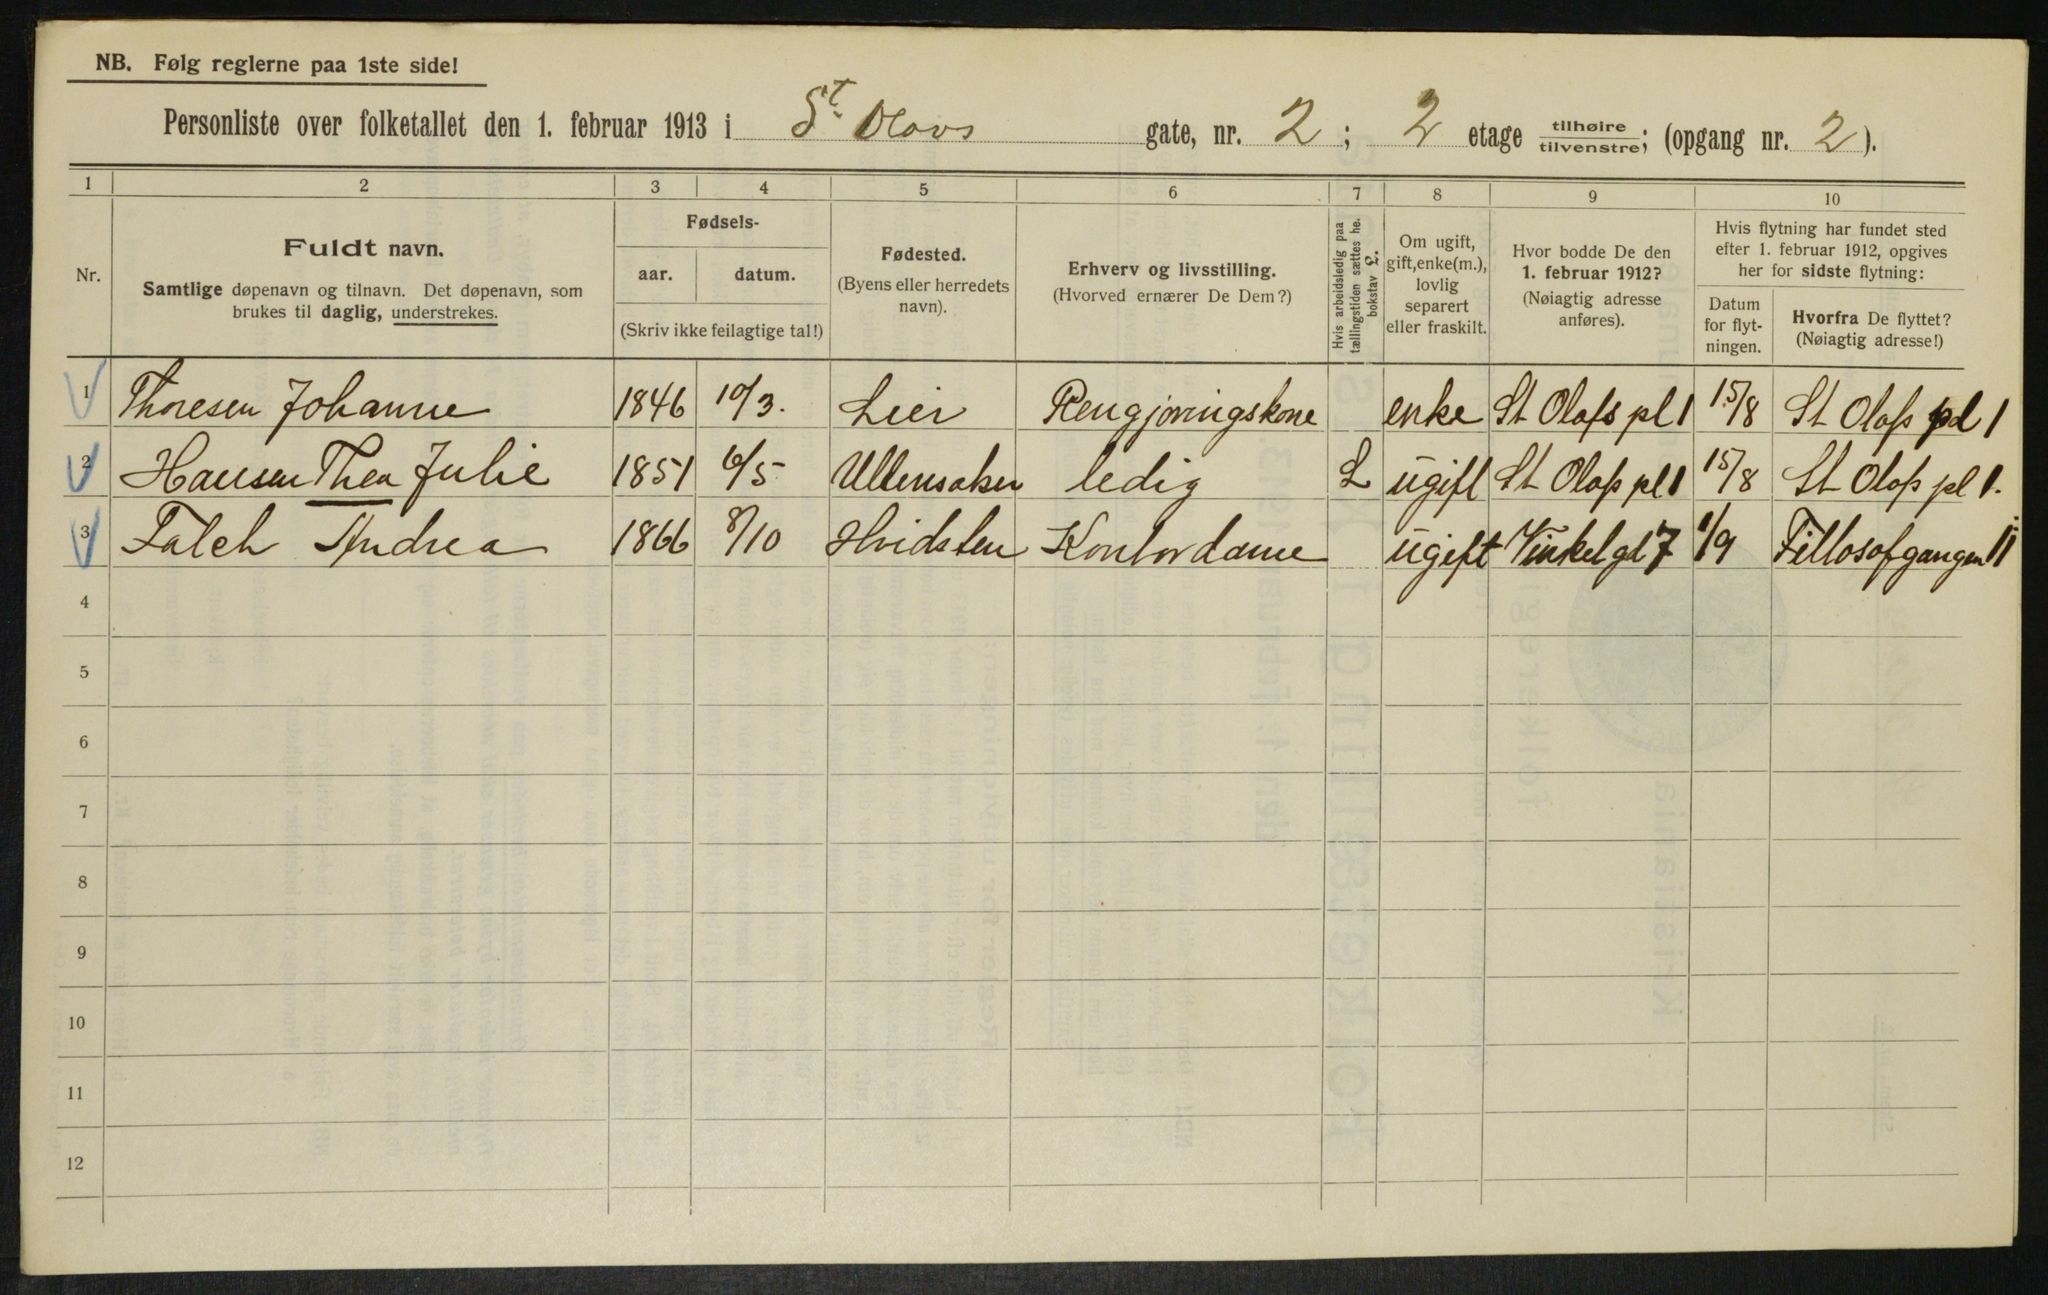 NB. Følg reglerne paa 1ste side!
Personliste over folketallet den 1. februar 1913 i St. Olavs gate, nr. 2; 2 etage tilhøire tilvenstre; (opgang nr. 2).
1 2 3 4 5 6 7 8 9 10
Nr.
Fuldt navn.
Samtlige døpenavn og tilnavn. Det døpenavn, som
brukes til daglig, understrekes.
Fødsels-
aar. datum.
(Skriv ikke feilagtige tal!)
Fødested.
(Byens eller herredets
navn).
Erhverv og livsstilling.
(Hvorved ernærer De Dem?)
Hvis arbeidsledig paa
tællingstiden sættes he.
bokstav L.
Om ugift,
gift, enke(m.),
lovlig
separert
eller fraskilt.
Hvor bodde De den
1. februar 1912?
(Nøiagtig adresse
anføres).
Hvis flytning har fundet sted
efter 1. februar 1912, opgives
her for sidste flytning:
Datum
for flyt-
ningen.
Hvorfra De flyttet?
(Nøiagtig adresse!)
1 Thoresen Johanne 1846 10/3. Lier Rengjøringskone enke St Olafs pl 1 15/8 St Olafs pl 1
2 Hansen Thea Julie 1851 6/5 Ullensaker ledig L ugift St Olafs pl 1 15/8 St Olafs pl 1.
3 Falch Andrea 1866 8/10 Hvidsten Kontordame ugift Vinkelgd 7 1/9 Fillosofgangen 11
4
5
6
7
8
9
10
11
12